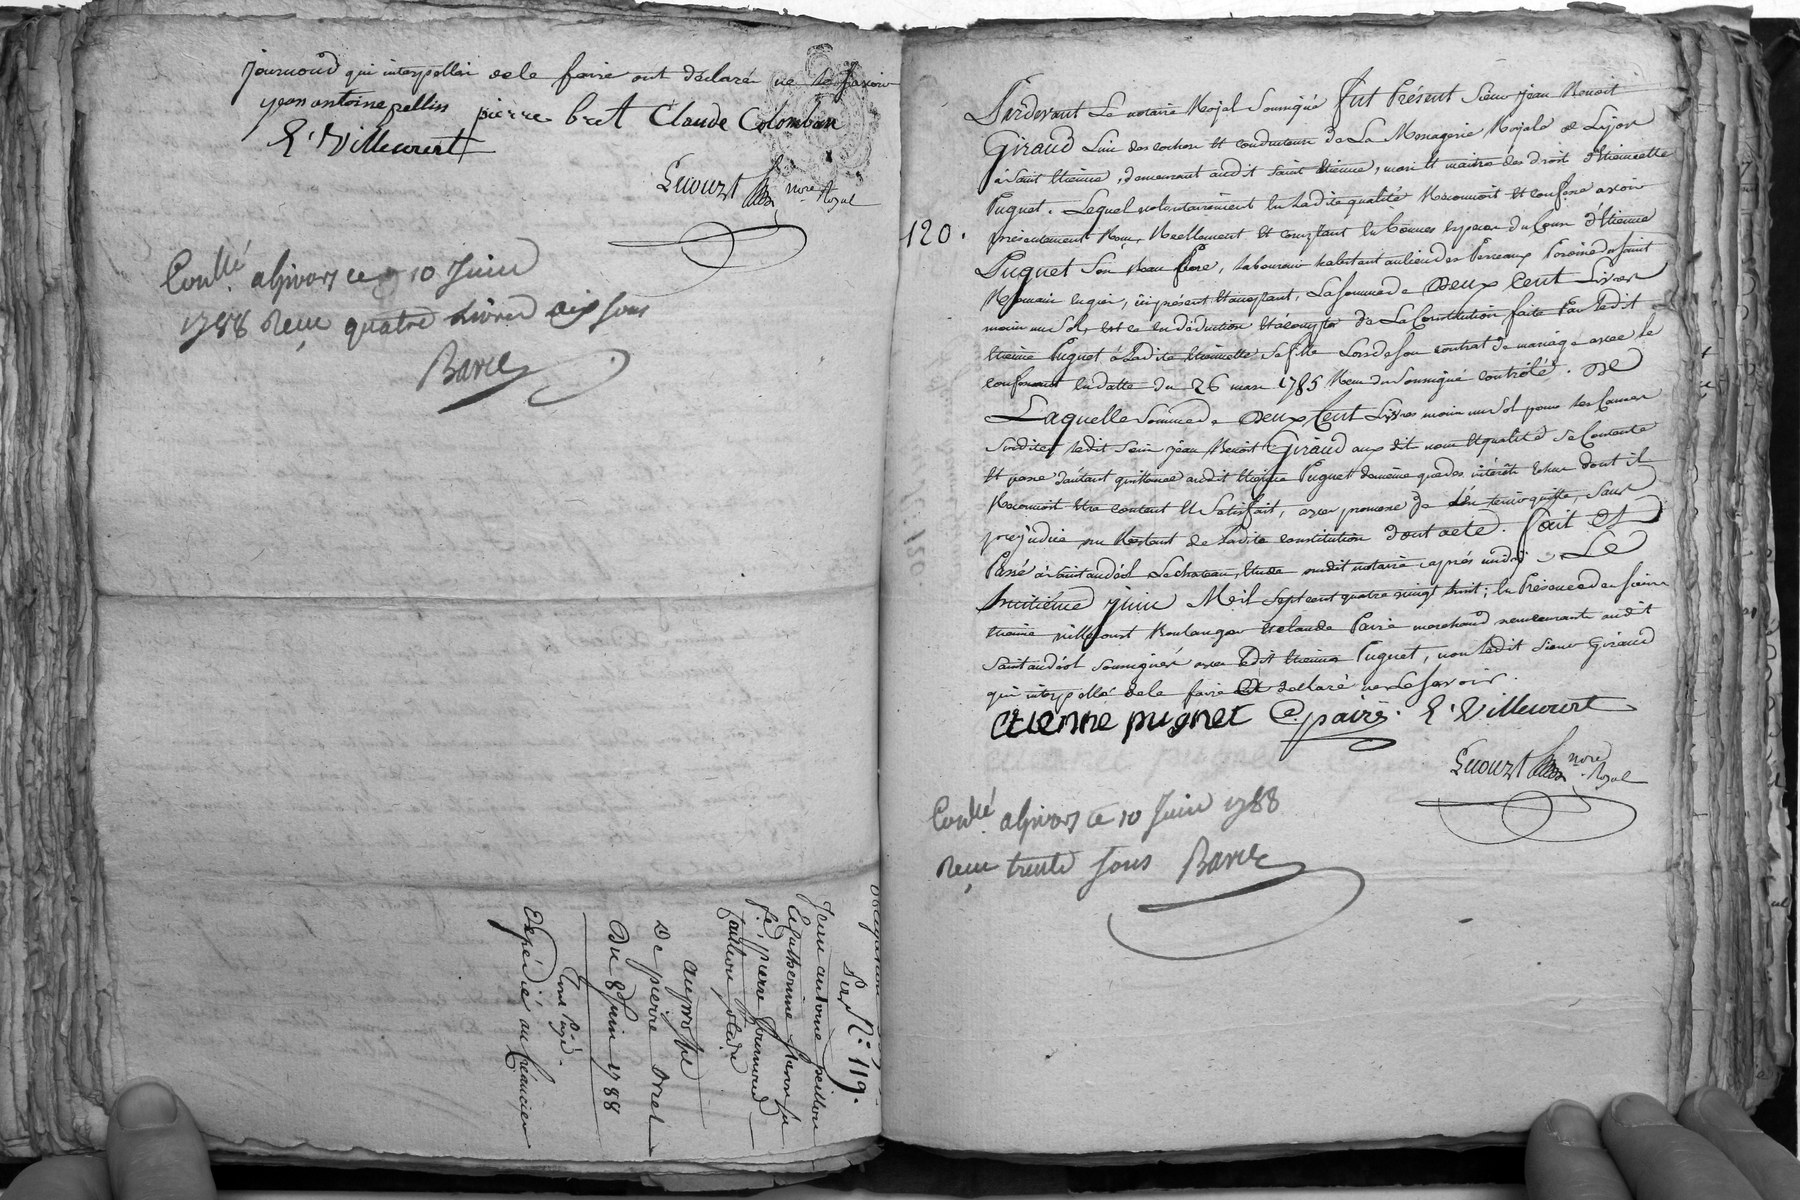 Journoud qui interpellés de le faire ont déclaré ne le savoir
jean antoine pellin pierre bret Claude Colomban
E: Villeurert
Lhouzt nore Royal
Conllé a Givors ce 10 Juin
1788 Reçu quatre livres dix sous
Barel
Sieur N.° 119.
Jean antoine peillon
Catherine
pierre Journoud
auproffit
De pierre Bret
Du 8 Juin 1788
Expédié au Créancier
120.
Pardevant Le notaire Royal Soussigné fut Présent Sieur jean Benoit
Giraud Luic des coches et conducteur de La Messagerie Royale de Lyon
à Saint Etienne, demeurant audit Saint Etienne, mari et maitre des droits d'Etiennette
Pugnet. Lequel volontairement en Ladite qualité Reconnoit et confesse avoir
présentement Reçu, Reellement et comptant en bonnes Especes du Cours d'Etienne
Pugnet Son Beau frere, Laboureur habitant au lieu des Perreaux Paroisse de Saint
Romain en gier, ici présent et acceptant, La Somme de Deux Cent Livres
moins un Sol, et ce en déduction et acompte de La Constitution faite Par Ledit
Etienne Pugnet à Ladite Etiennette Sa fille Lors de Son contrat de mariage avec le
confessant en datte du 26 mars 1785 Reçu du Soussigné contrôlé. De
Laquelle Somme de Deux Cent Livres moins un Sol pour les Causes
Susdites Ledit Sieur jean Benoit Giraud aux dit nom et qualité Se Contente
et passe d'autant quittance audit Etienne Pugnet de même que des intérêts echus dont il
Reconnoit Etre content et Satisfait, avec promesse de L'en tenir quitte, Sans
préjudice du Restant de Ladite constitution dont acte. Fait Et
Passé à Saint andéol Le chateau, Etude dudit notaire après midi Le
huitieme juin Mil Sept cent quatre vingt huit; En Présence de Sieurs
Etienne villeurert Boulanger et claude Pairé marchand demeurants audit
Saint andéol Soussignés avec Ledit Etienne Pugnet, non Ledit Sieur Giraud
qui interpellé de le faire a déclaré ne Le Savoir.
etienne pugnet C. pairé. E: Villeurert
Lhouzt nore Royal
Conllé a Givors ce 10 Juin 1788
Reçu trente sous Barel